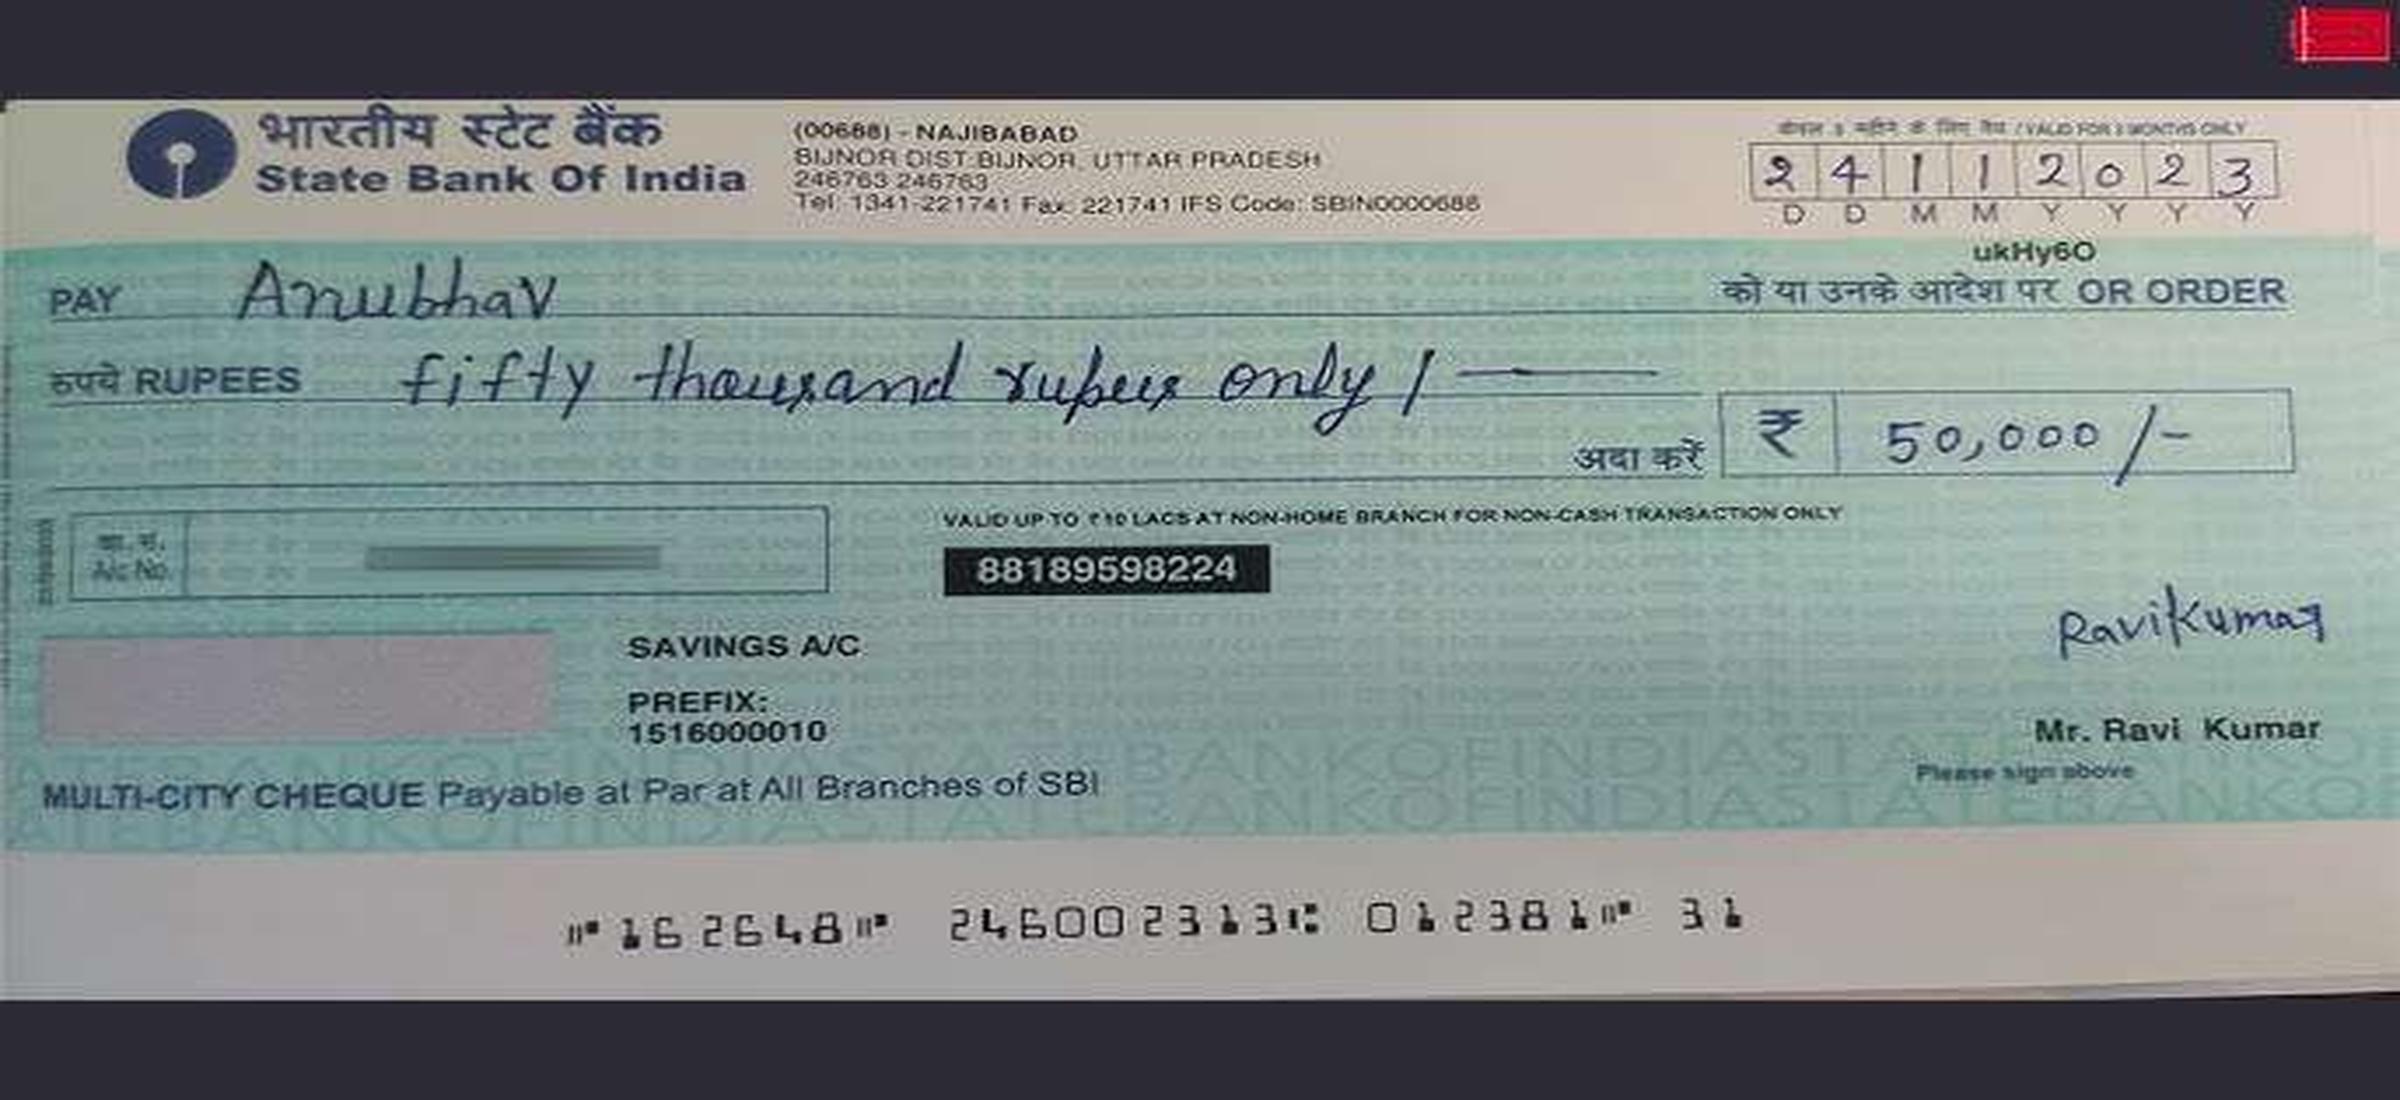 भारतीय स्टेट बैंक
State Bank Of India
(00688) - NAJIBABAD
BIJNOR DIST:BIJNOR, UTTAR PRADESH
246763 246763
Tel: 1341-221741 Fax: 221741 IFS Code: SBIN0000688
केवल 3 महीने के लिए वैध / VALID FOR 3 MONTHS ONLY
2 4 1 1 2 0 2 3
D D M M Y Y Y Y
ukHy6O
PAY Anubhav को या उनके आदेश पर OR ORDER
रुपये RUPEES fifty thousand rupees only /
अदा करें ₹ 50,000/-
खा. सं.
A/c No.
VALID UP TO ₹ 10 LACS AT NON-HOME BRANCH FOR NON-CASH TRANSACTION ONLY
88189598224
SAVINGS A/C
PREFIX:
1516000010
RaviKumar
Mr. Ravi Kumar
Please sign above
MULTI-CITY CHEQUE Payable at Par at All Branches of SBI
⑈162648⑈ 246002313⑆ 012381⑈ 31